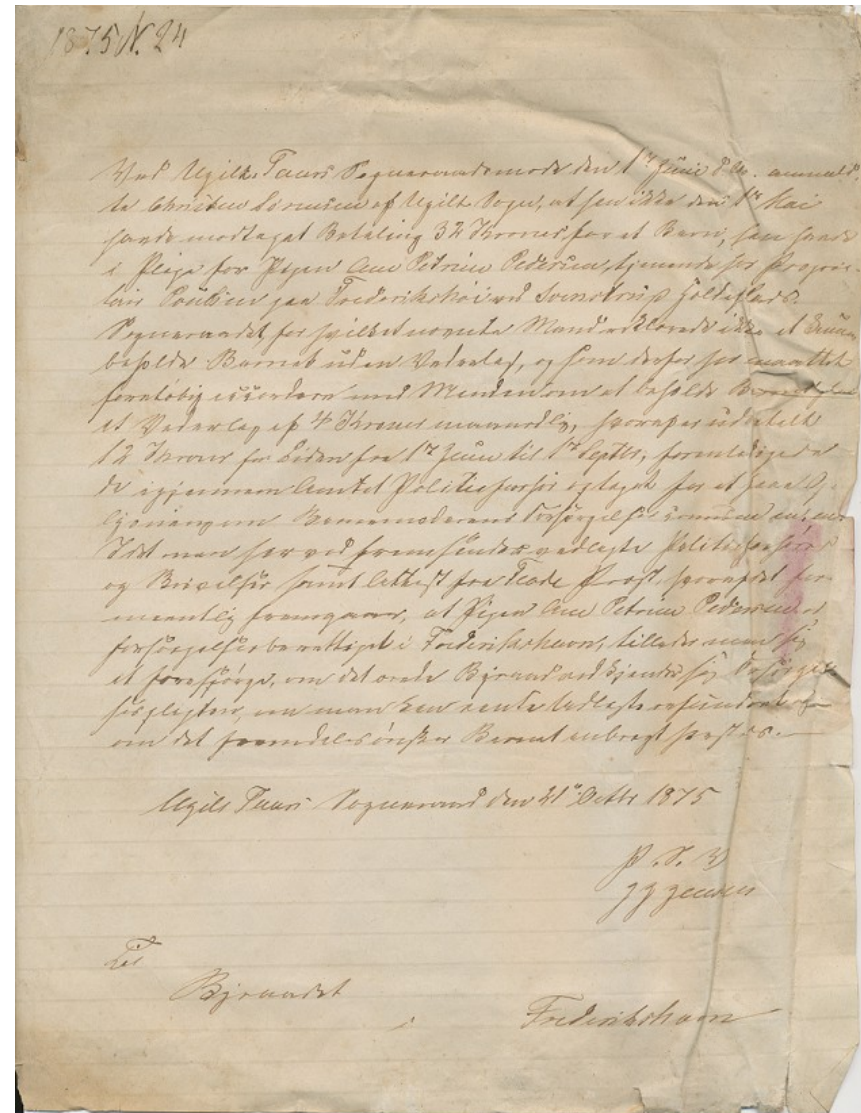 1875 N. 24
Ved Ugilt-Taars Sogneraadsmøde den 1ste Juni d. A. anmeld-
te Christen Sørensen af Ugilt Sogn, at han ikke den 1ste Mai
havde modtaget Betaling 32 Kroner for et Barn, han havde
i Pleje for Pigen Ane Petrine Pedersen, tjenende hos Proprie-
tair Poulsen paa Frederikshøi ved Svenstrup Holdeplads.
Sogneraadet for hvilket nævnte Mand erklærede ikke at kunne
beholde Barnet uden Vederlag, og som derfor har maattet
foreløbig accordere med Manden om at beholde Barnet for
et Vederlag af 4 Kroner maanedlig, hvoraf er udbetalt
12 Kroner for Tiden fra 1ste Juni til 1ste Septbr,
igjennem Amtet Politieforhør optaget for at faae
Barnemoderens Forsørgelses
Idet man her ved fremsender vedlagte Politieforhør
og Skrivelser samt Attest fra Flade Præst, hvoraf det for-
meentlig fremgaaer, at Pigen Ane Petrine Pedersen er
forsørgelsesberettiget i Frederikshavn, tillader man sig
at forespørge, om det ærede Byraad vedkjender sig Forsørgel-
sespligten, om man kan vente Udlagte refunderet og
om det fremdeles ønsker Barnet anbragt hos os.
Ugilt Taars Sogneraad den 21de Octbr 1875
P. S. V
J J Jensen
Til
Byraadet
i Frederikshavn